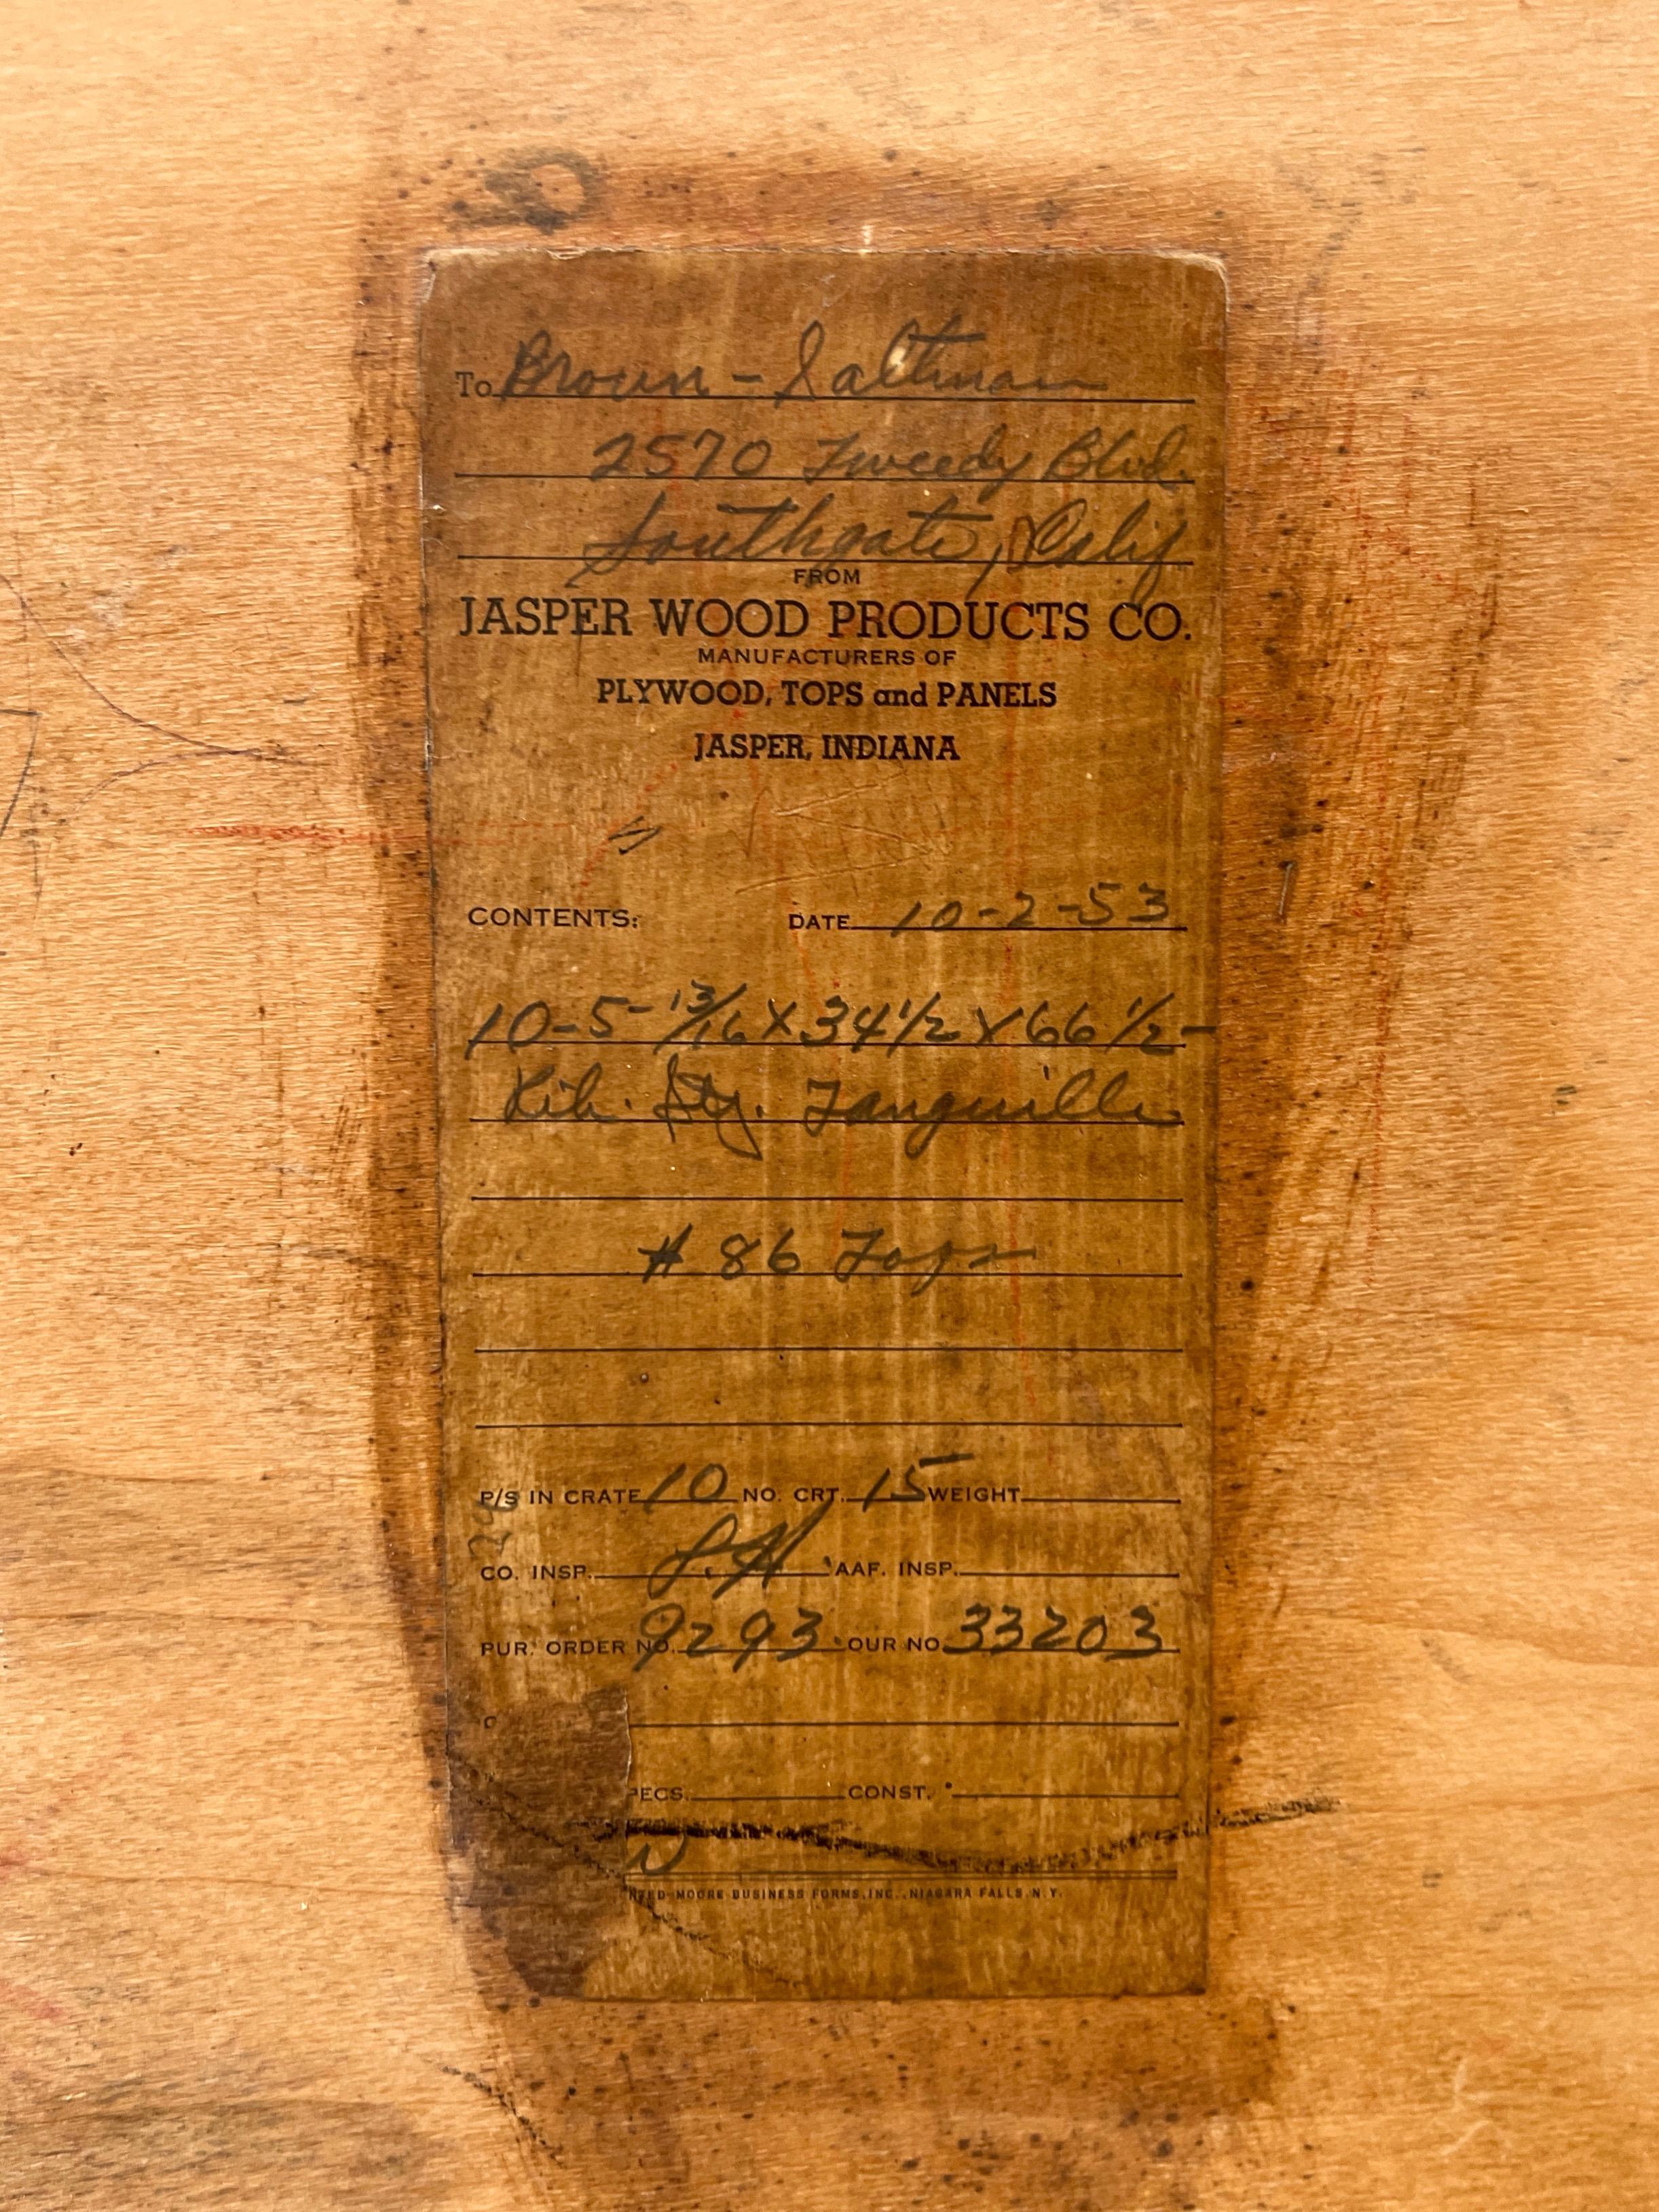 To Brown-Saltman
2570 Tweedy Blvd.
Southgate, Calif
FROM
JASPER WOOD PRODUCTS CO.
MANUFACTURERS OF
PLYWOOD, TOPS and PANELS
JASPER, INDIANA
CONTENTS: DATE 10-2-53
10-5-13/16 X 34 1/2 X 66 1/2-
Rib. Tanguille
# 86 Tops
P/S IN CRATE 10 NO. CRT. 15 WEIGHT
CO. INSP. AAF. INSP.
PUR. ORDER NO. 9293 OUR NO. 33203
CONST.
MOORE BUSINESS FORMS, INC., NIAGARA FALLS, N.Y.